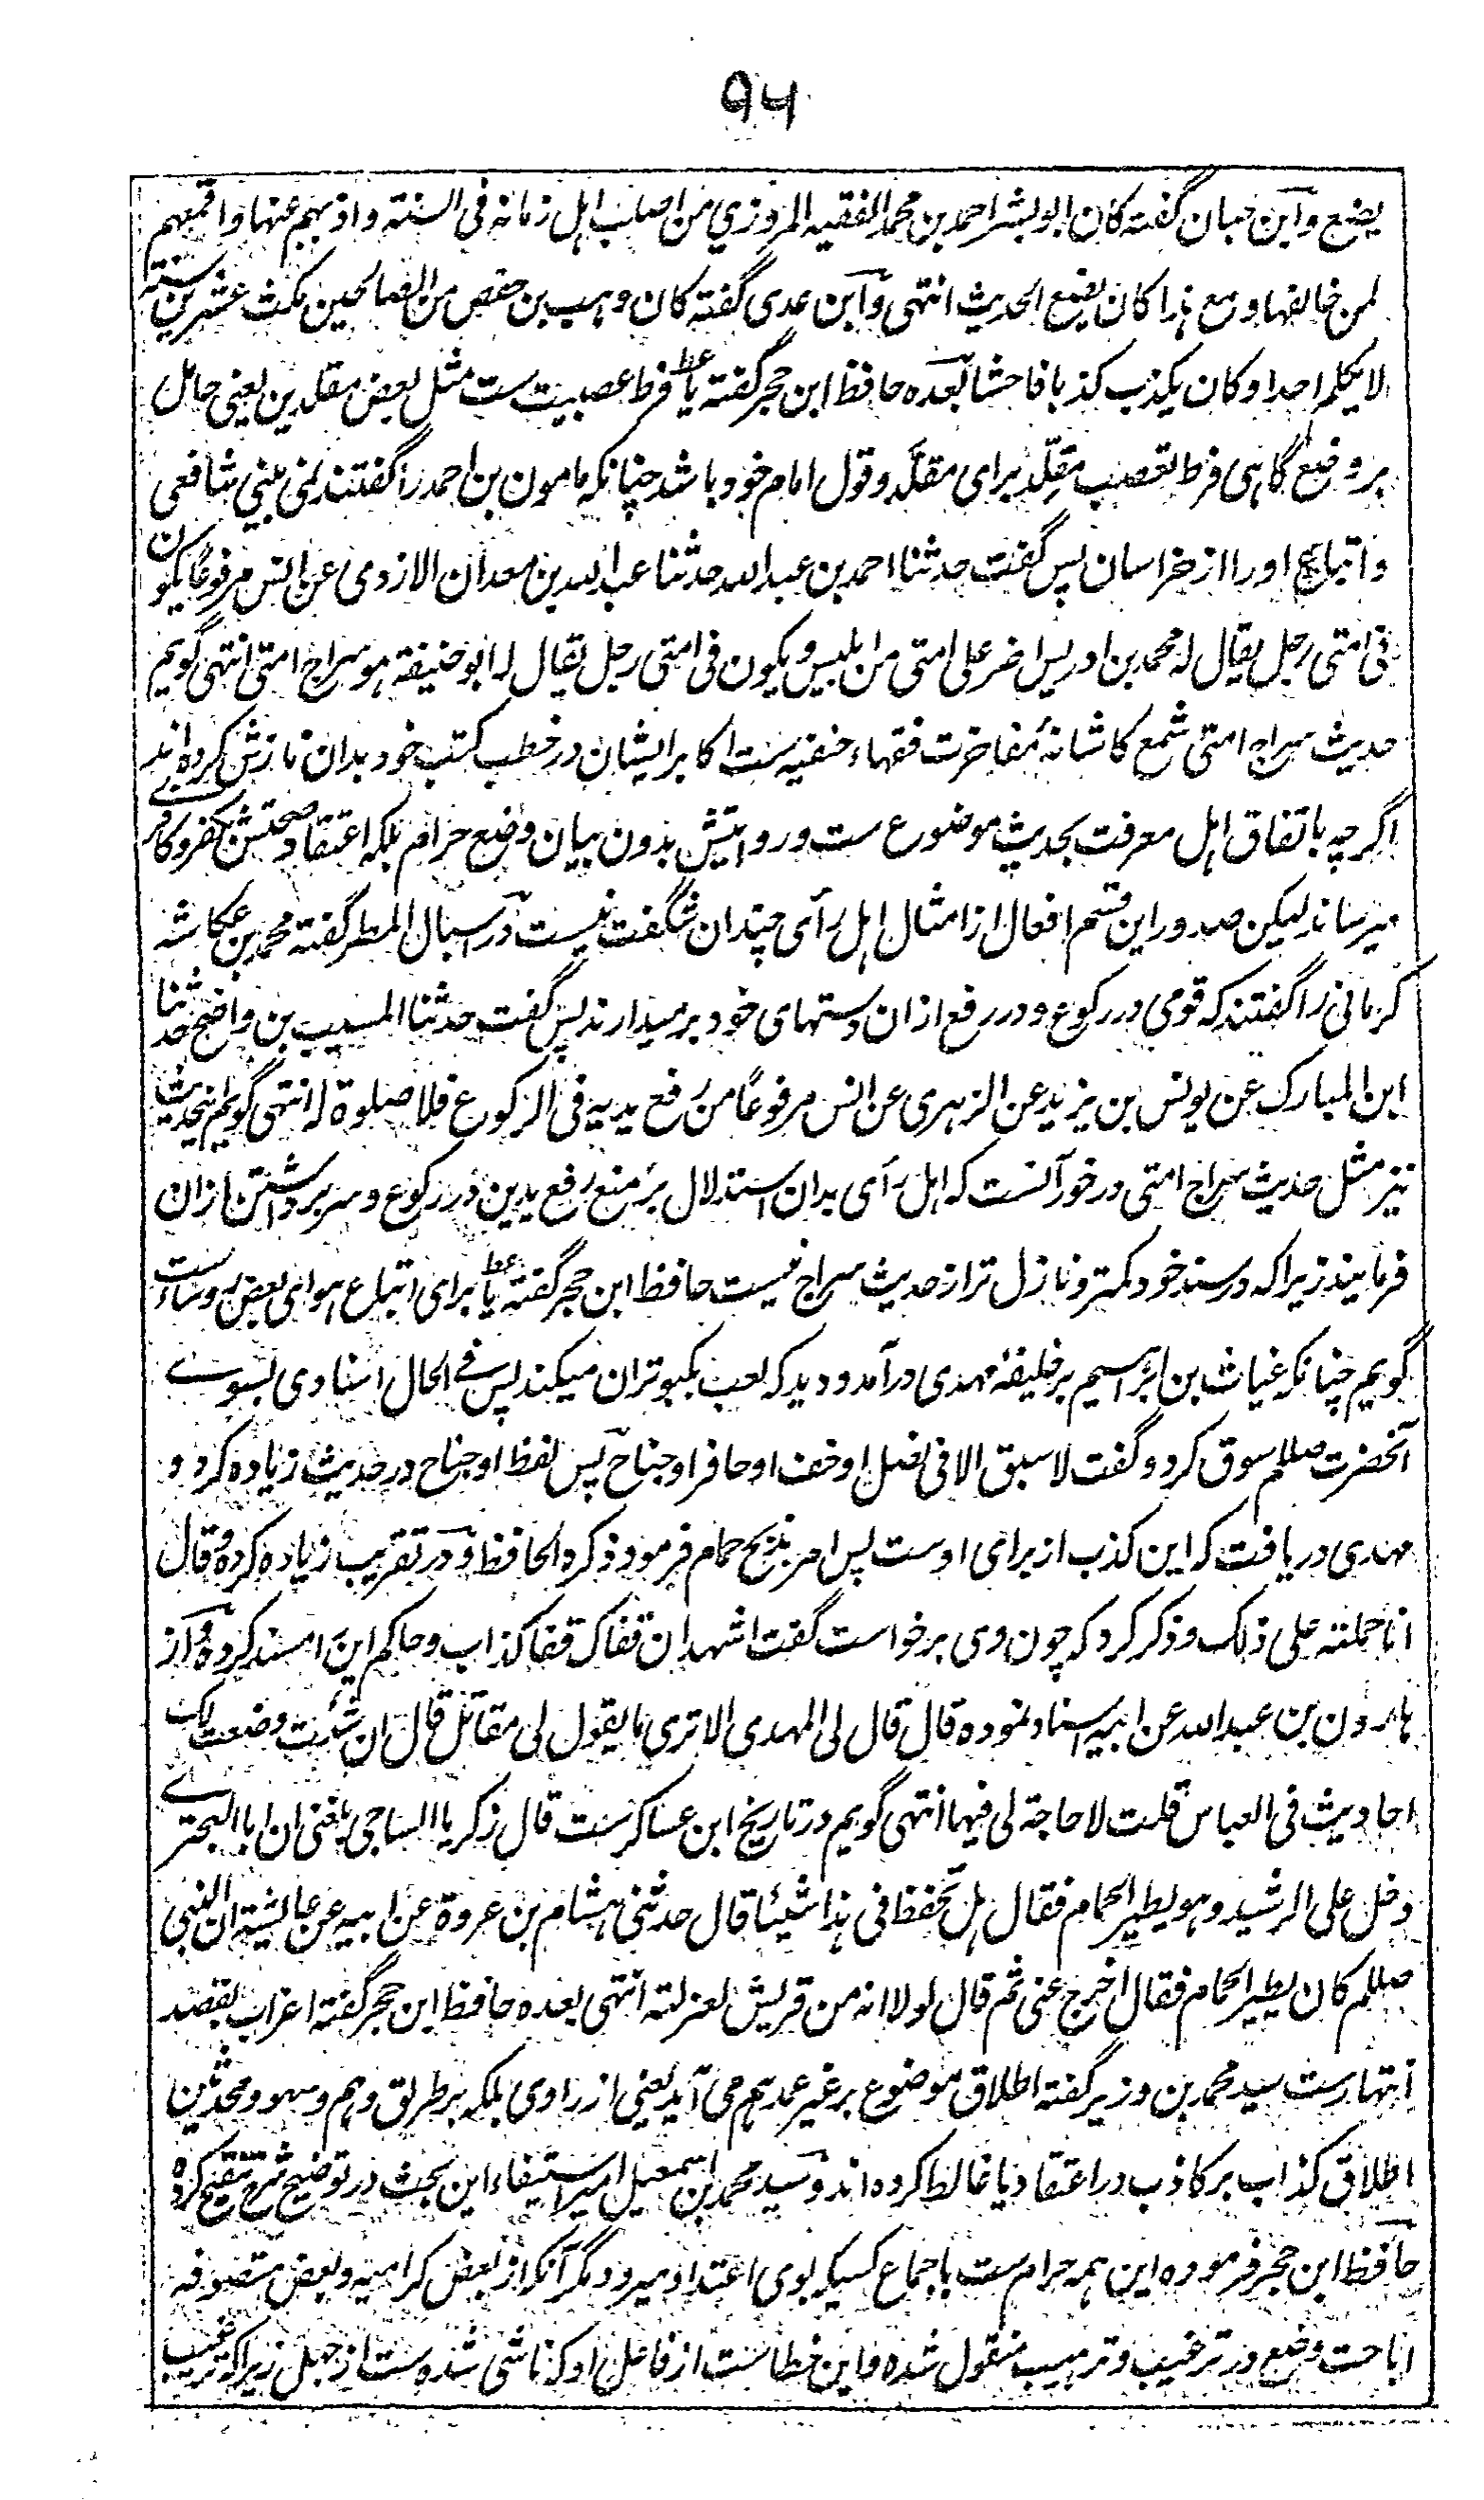 ۹۶
یضع وابن حبان گفته کان ابو بشر احمد بن محمد الفقیه المروزي من اصلب اہل زمانه فی السنة واذبهم عنها واقمعهم
لمن خالفها ومع ہذا کان یضع الحدیث انتهی وابن عدی گفته کان وہب بن حفص من الصالحین مکث عشرین سنة
لا یکلم احدا وکان یکذب کذبا فاحشا بعده حافظ ابن حجر گفته یا فرط عصبیت ست مثل بعض مقلدین یعنی حامل
بر وضع گاہی فرط تعصب مقلِّد برای مقلَّد وقول امام خود باشد چنانکه مامون بن احمد را گفتند نمی بینی شافعی
واتباع او را از خراسان پس گفت حدثنا احمد بن عبد الله حدثنا عبد الله بن معدان الازدی عن انس مرفوعًا یکون
فی امتی رجل یقال له محمد بن ادریس اضر علی امتی من ابلیس ویکون فی امتی رجل یقال له ابو حنیفة ہو سراج امتی انتهی گویم
حدیث سراج امتی شمع کاشانۂ مفاخرت فقہاء حنفیه ست اکابر ایشان در خطب کتب خود بدان نازش کرده اند
اگرچه باتفاق اہل معرفت بحدیث موضوع ست وروایتش بدون بیان وضع حرام بلکه اعتقاد صحتش بکفر وکافری
میرساند لیکن صدور این قسم افعال از امثال اہل رأی چندان شگفت نیست در اسبال المطر گفته محمد بن عکاشه
کرمانی را گفتند که قومی در رکوع ودر رفع ازان دستہای خود برمیدارند پس گفت حدثنا المسیب بن واضح حدثنا
ابن المبارک عن یونس بن یزید عن الزہری عن انس مرفوعًا من رفع یدیه فی الرکوع فلا صلوة له انتهی گویم اینحدیث
نیز مثل حدیث سراج امتی درخور آنست که اہل رأی بدان استدلال بر منع رفع یدین در رکوع وسر برداشتن ازان
فرمایند زیراکه در سند خود کمتر ونازل تر از حدیث سراج نیست حافظ ابن حجر گفته یا برای اتباع ہوای بعض رؤساء ست
گویم چنانکه غیاث بن ابراہیم بر خلیفۂ مهدی درآمد ودید که لعب بکبوتران میکند پس فی الحال اسنادی بسوے
آنحضرت صللم سوق کرد وگفت لا سبق الا فی نصل او خف او حافر او جناح پس لفظ او جناح در حدیث زیاده کرد و
مهدی دریافت که این کذب از برای اوست پس امر بذبح حمام فرمود ذکره الحافظ ودر تقریب زیاده کرده وقال
انا حملته علی ذلک وذکر کرد که چون وی برخواست گفت اشهد ان قفاک قفا کذاب وحاکم این را مسند کرده واز
ہارون بن عبد الله عن ابیه اسناد نموده قال قال لی المهدی الا تری ما یقول لی مقاتل قال ان شئت وضعت لک
احادیث فی العباس قلت لا حاجة لی فیها انتهی گویم در تاریخ ابن عساکر ست قال زکریا الساجی بلغنی ان ابا البحتری
دخل علی الرشید وہو یطیر الحمام فقال ہل تحفظ فی ہذا شیئا قال حدثنی ہشام بن عروة عن ابیه عن عایشة ان النبی
صللم کان یطیر الحمام فقال اخرج عنی ثم قال لولا انه من قریش لعزلته انتهی بعده حافظ ابن حجر گفته اغراب بقصد
اشتهار ست سید محمد بن وزیر گفته اطلاق موضوع بر غیر عمد ہم می آید یعنی از راوی بلکه بر طریق وہم وسهو ومحدثین
اطلاق کذاب بر کاذب در اعتقاد یا غالط کرده اند وسید محمد بن اسمعیل امیر استیفاء این بحث در توضیح شرح تنقیح کرده
حافظ ابن حجر فرموده این ہمه حرام ست باجماع کسیکه بوی اعتداد میرود مگر آنکه از بعض کرامیه وبعض متصوفه
اباحت وضع در ترغیب وترہیب منقول شده واین خطاست از فاعل او که ناشی شده ست از جهل زیراکه ترغیب